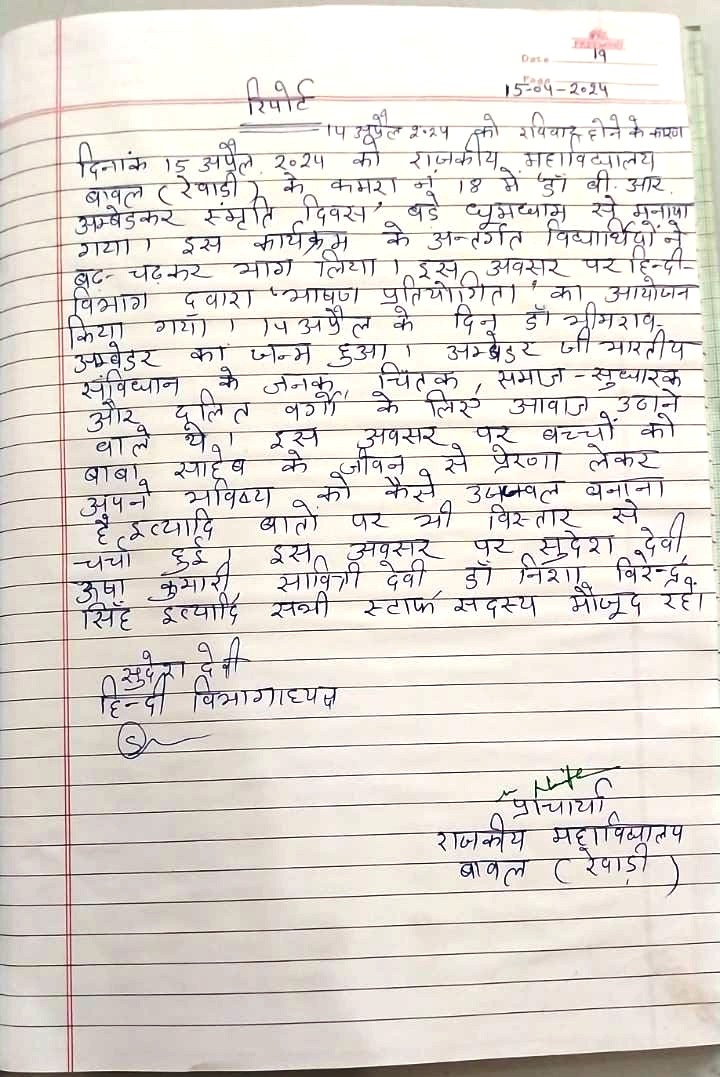 Date 19
Page
15-04-2024
रिपोर्ट
14 अप्रैल 2024 को रविवार होने के कारण
दिनांक 15 अप्रैल 2024 को राजकीय महाविद्यालय
बावल (रेवाडी) के कमरा नं 18 में 'डॉ बी. आर.
अम्बेडकर स्मृति दिवस' बडे धूमधाम से मनाया
गया। इस कार्यक्रम के अन्तर्गत विद्यार्थियों ने
बढ-चढकर भाग लिया। इस अवसर पर हिन्दी-
विभाग द्वारा 'भाषण प्रतियोगिता' का आयोजन
किया गया। 14 अप्रैल के दिन डॉ भीमराव-
अम्बेडर का जन्म हुआ। अम्बेडर जी भारतीय
संविधान के जनक, चिंतक, समाज-सुधारक
और दलित वर्गों के लिए आवाज उठाने
वाले थे। इस अवसर पर बच्चों को
बाबा साहेब के जीवन से प्रेरणा लेकर
अपने भविष्य को कैसे उज्जवल बनाना
है, इत्यादि बातों पर भी विस्तार से
चर्चा हुई। इस अवसर पर सुदेश देवी,
ऊषा कुमारी, सावित्री देवी, डॉ निशा, विरेन्द्र
सिंह इत्यादि सभी स्टाफ सदस्य मौजूद रहे।
सुदेश देवी
हिन्दी विभागाध्यक्ष
प्राचार्या
राजकीय महाविद्यालय
बावल (रेवाड़ी)